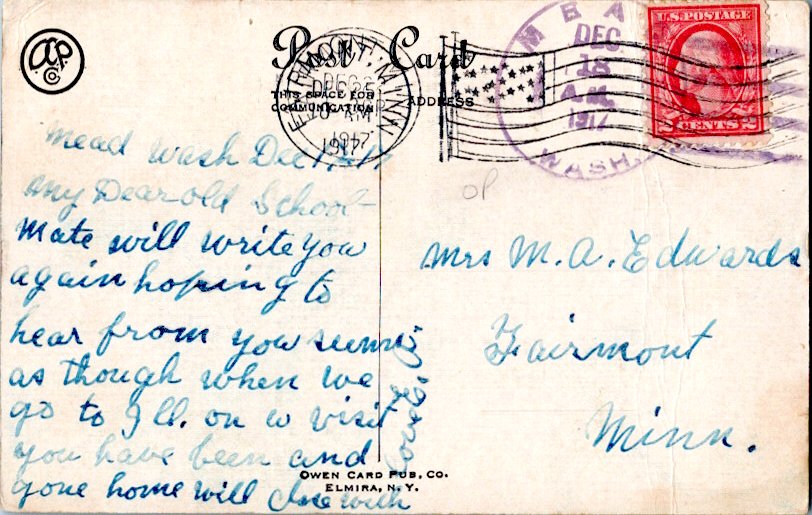 Post Card
THIS SPACE FOR
COMMUNICATION
ADDRESS
FAIRMONT, MINN
DEC 25
AM
1917
MBA
DEC
18
A.M.
1917
WASH.
U.S. POSTAGE
2 CENTS 2
OP
Mead Wash Dec 17
My Dear old School-
Mate will write you
again hoping to
hear from you seems
as though when we
go to Ill. on a visit
you have been and
gone home will close with
love
Mrs M. A. Edwards
Fairmont
Minn.
OWEN CARD PUB. CO.
ELMIRA, N.Y.